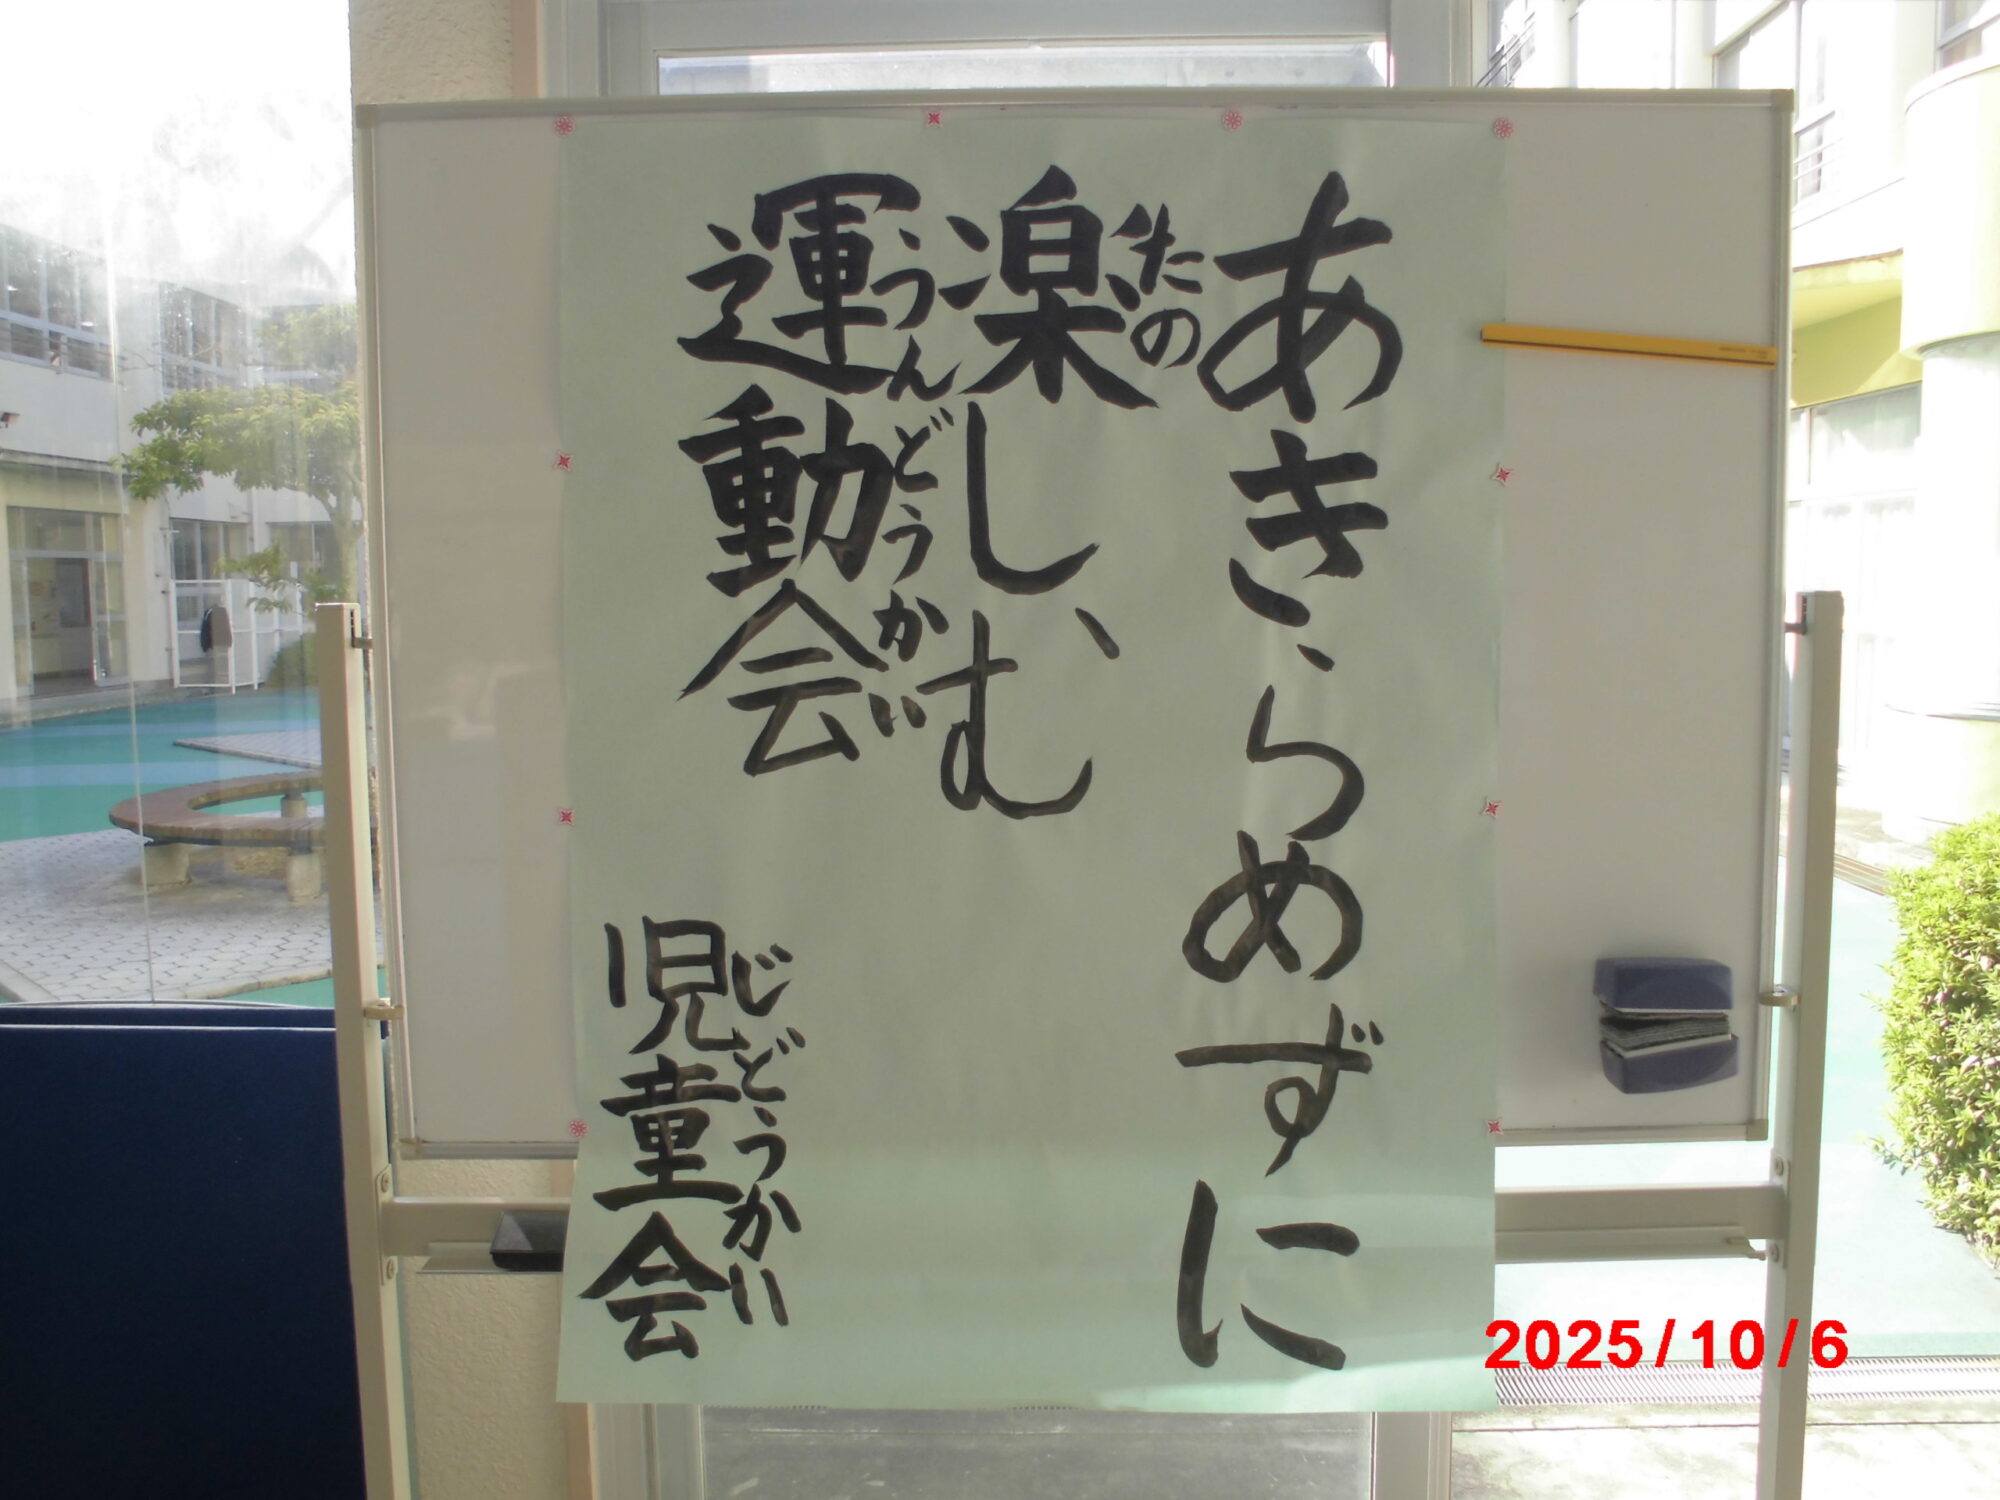 あきらめずに
楽しむ
たの
運動会
うんどうかい
児童会
じどうかい
2025/10/6